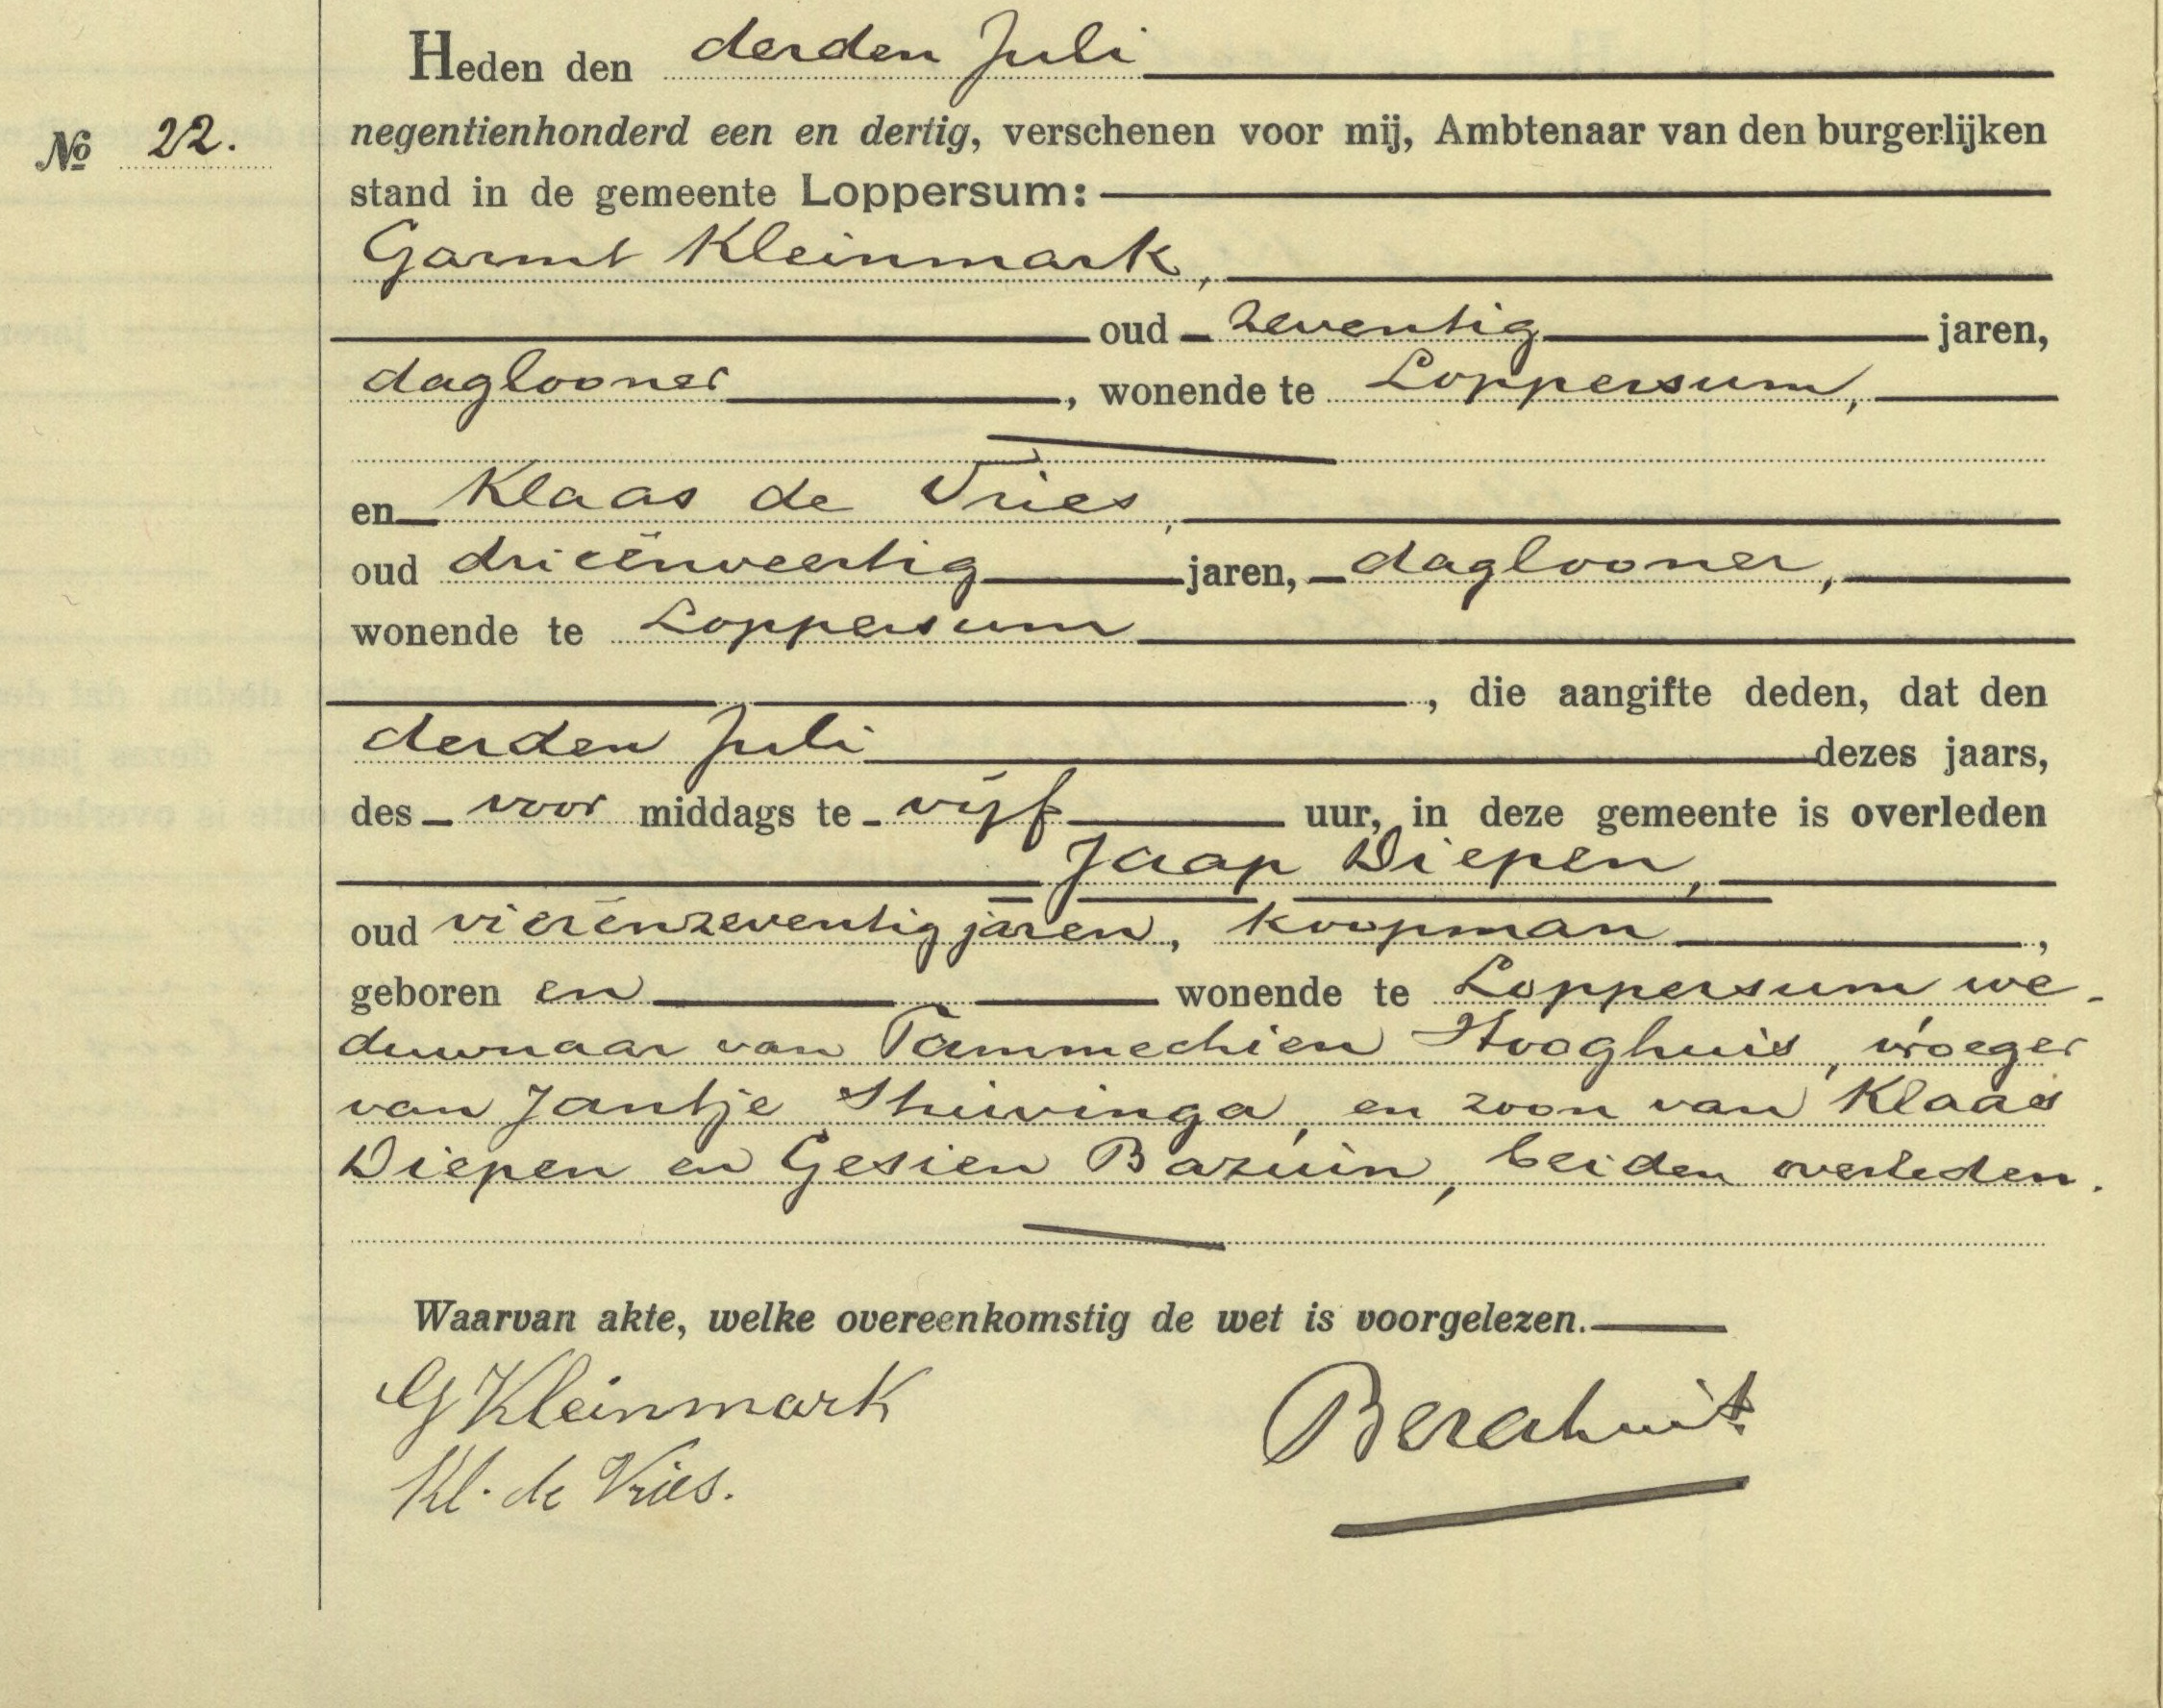 Heden den derden Juli
No 22.
negentienhonderd een en dertig, verschenen voor mij, Ambtenaar van den burgerlijken
stand in de gemeente Loppersum:
Garmt Kleinmark,
oud zeventig jaren,
daglooner, wonende te Loppersum,
en Klaas de Vries,
oud drieënveertig jaren, daglooner,
wonende te Loppersum
, die aangifte deden, dat den
derden Juli dezes jaars,
des voor middags te vijf uur, in deze gemeente is overleden
Jaap Diepen,
oud vierenzeventig jaren, koopman,
geboren en wonende te Loppersum we-
duwnaar van Tammechien Hooghuis, vroeger
van Jantje, en zoon van Klaas
Diepen en Gesien Bazuin, beiden overleden.
Waarvan akte, welke overeenkomstig de wet is voorgelezen.
G Kleinmark
Kl. de Vries.